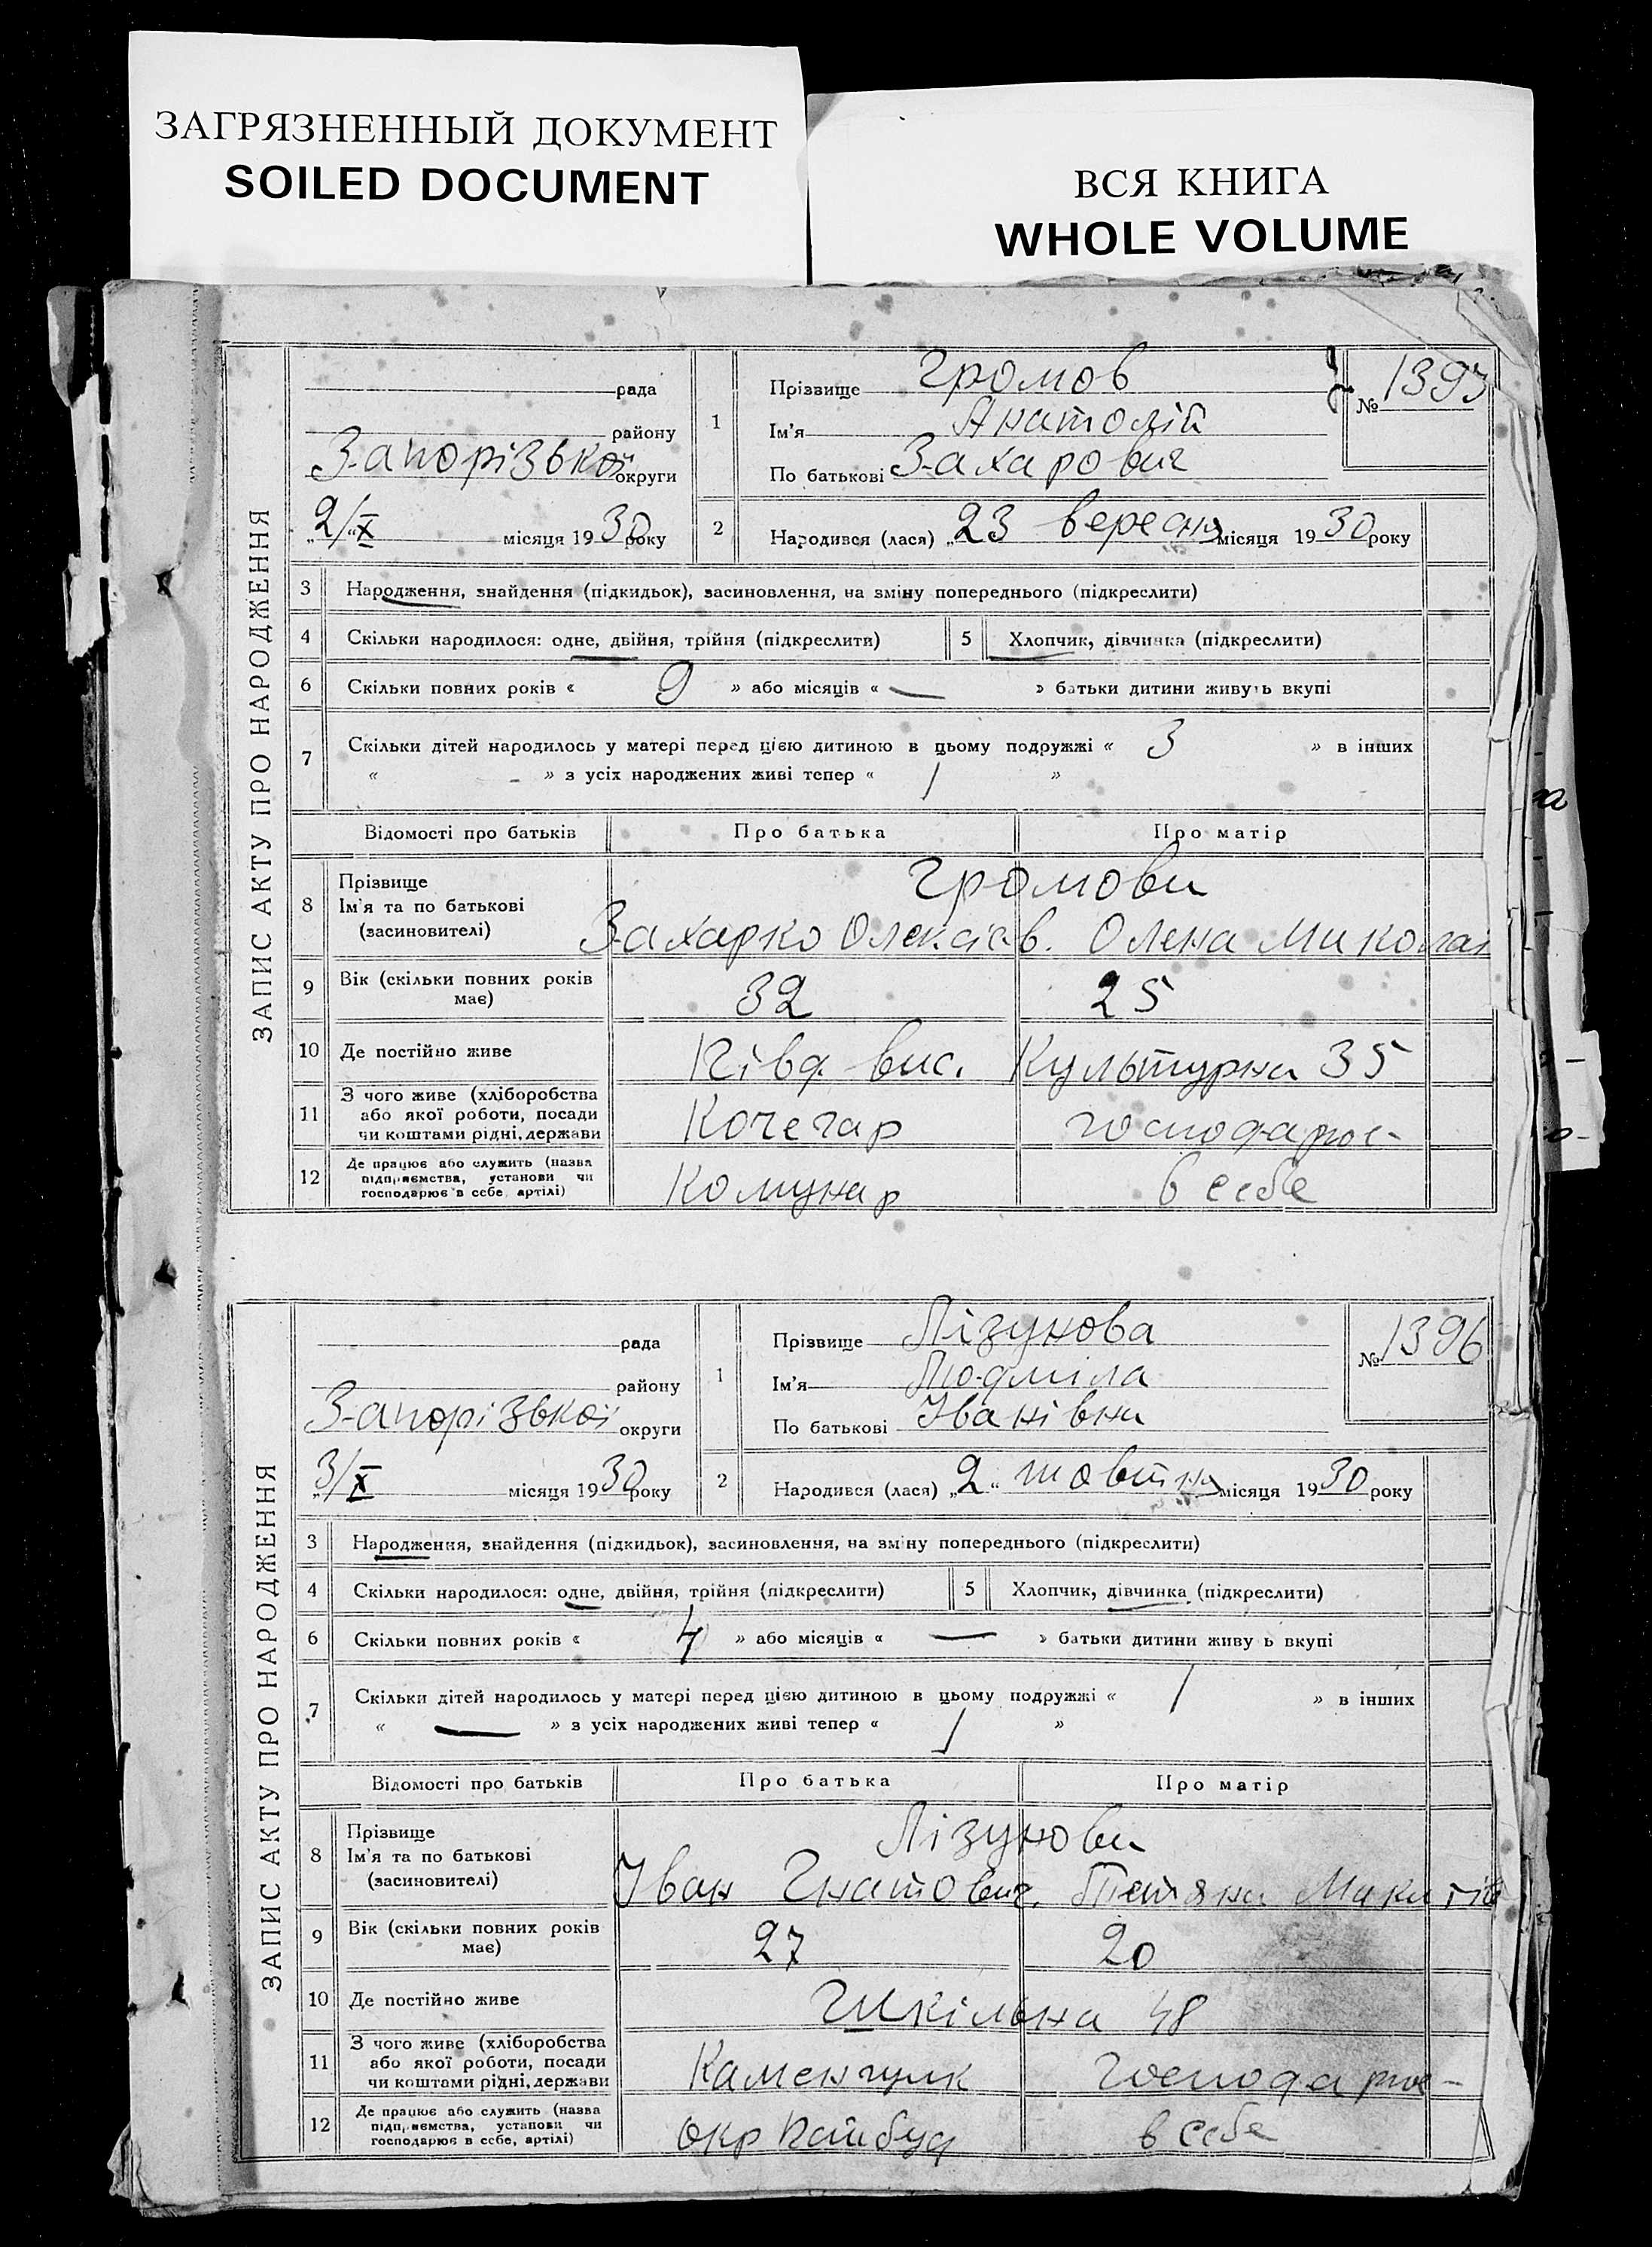 ЗАГРЯЗНЕННЫЙ ДОКУМЕНТ
SOILED DOCUMENT
ВСЯ КНИГА
WHOLE VOLUME
ЗАПИС АКТУ ПРО НАРОДЖЕННЯ
рада
району
Запорізької округи
„2/“X місяця 1930 року
1 Прізвище Громов
Ім'я Анатолій
По батькові Захарович
№ 1393
2 Народився (лася) „23 вересня місяця 1930 року
3 Народження, знайдення (підкидьок), засиновлення, на зміну попереднього (підкреслити)
4 Скільки народилося: одне, двійня, трійня (підкреслити) 5 Хлопчик, дівчинка (підкреслити)
6 Скільки повних років « 9 » або місяців « — » батьки дитини живуть вкупі
7 Скільки дітей народилось у матері перед цією дитиною в цьому подружжі « 3 » в інших
« - » з усіх народжених живі тепер « 1 »
Відомості про батьків Про батька Про матір
8 Прізвище
Ім'я та по батькові
(засиновителі)
Громови
Захарко Олексієв. Олена Миколаї
9 Вік (скільки повних років має) 32 25
10 Де постійно живе Півд. вис. Культурна 35
11 З чого живе (хліборобства
або якої роботи, посади
чи коштами рідні, держави
Кочегар господарює-
12 Де працює або служить (назва
підприємства, установи чи
господарює в себе, артілі)
Комунар в себе
ЗАПИС АКТУ ПРО НАРОДЖЕННЯ
рада
району
Запорізької округи
„3/X місяця 1930 року
1 Прізвище Лізунова
Ім'я Людміла
По батькові Іванівна
№ 1396
2 Народився (лася) „2“ жовтня місяця 1930 року
3 Народження, знайдення (підкидьок), засиновлення, на зміну попереднього (підкреслити)
4 Скільки народилося: одне, двійня, трійня (підкреслити) 5 Хлопчик, дівчинка (підкреслити)
6 Скільки повних років « 4 » або місяців « — » батьки дитини живу ь вкупі
7 Скільки дітей народилось у матері перед цією дитиною в цьому подружжі « 1 » в інших
« — » з усіх народжених живі тепер « 1 »
Відомості про батьків Про батька Про матір
8 Прізвище
Ім'я та по батькові
(засиновителі)
Лізунови
Іван Гнатович. Тетяна Микитів
9 Вік (скільки повних років має) 27 20
10 Де постійно живе Шкільна 48
11 З чого живе (хліборобства
або якої роботи, посади
чи коштами рідні, держави
Каменщик Господарює-
12 Де працює або служить (назва
підприємства, установи чи
господарює в себе, артілі)
окр в себе